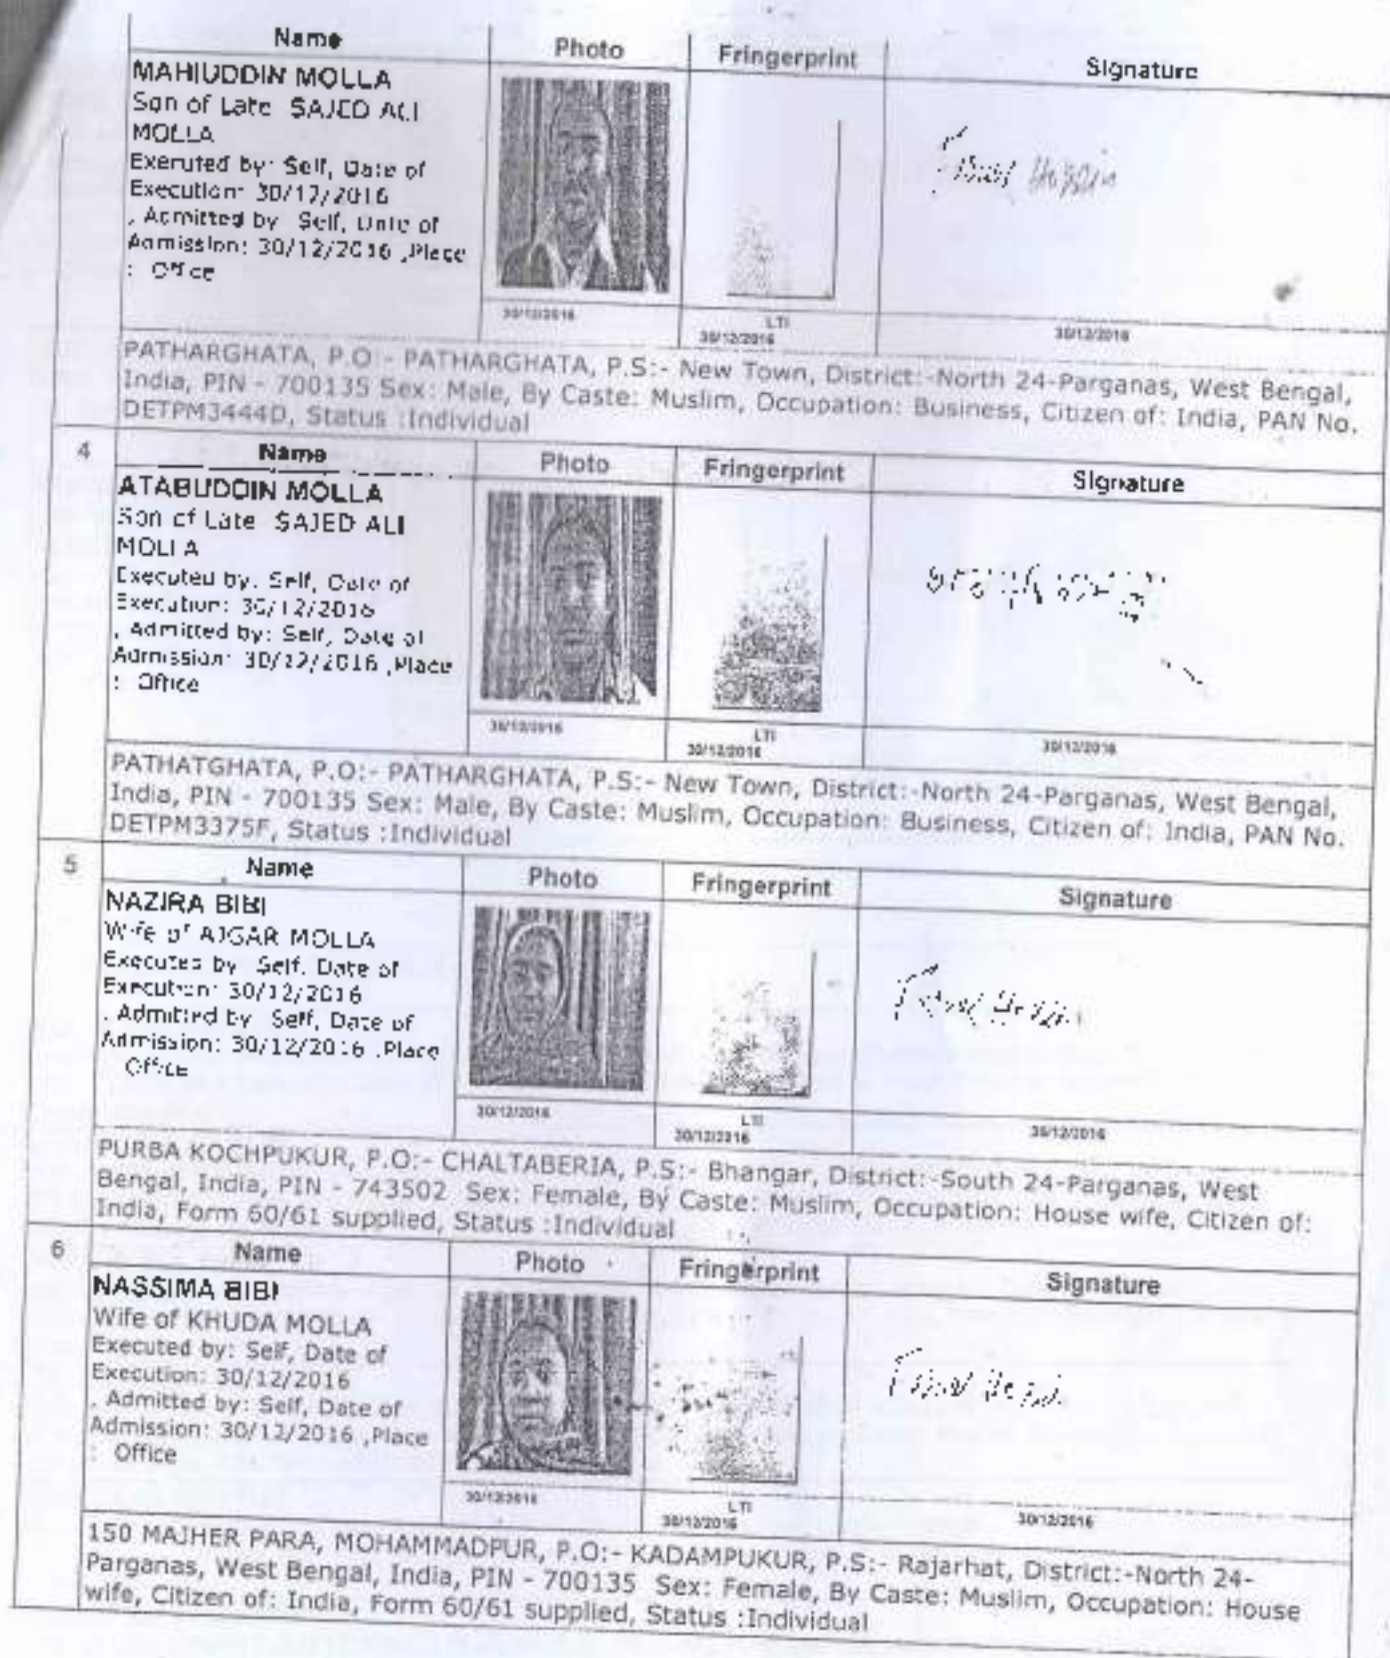 Name Photo Fringerprint Signature
MAHIUDDIN MOLLA
Son of Late SAJED ALI
MOLLA
Executed by: Self, Date of
Execution: 30/12/2016
, Admitted by: Self, Date of
Admission: 30/12/2016 ,Place
: Office
30/12/2016 LTI 30/12/2016 30/12/2016
PATHARGHATA, P.O:- PATHARGHATA, P.S:- New Town, District:-North 24-Parganas, West Bengal,
India, PIN - 700135 Sex: Male, By Caste: Muslim, Occupation: Business, Citizen of: India, PAN No.
DETPM3444D, Status :Individual
4 Name Photo Fringerprint Signature
ATABUDDIN MOLLA
Son of Late SAJED ALI
MOLLA
Executed by: Self, Date of
Execution: 30/12/2016
, Admitted by: Self, Date of
Admission: 30/12/2016 ,Place
: Office
30/12/2016 LTI 30/12/2016 30/12/2016
PATHATGHATA, P.O:- PATHARGHATA, P.S:- New Town, District:-North 24-Parganas, West Bengal,
India, PIN - 700135 Sex: Male, By Caste: Muslim, Occupation: Business, Citizen of: India, PAN No.
DETPM3375F, Status :Individual
5 Name Photo Fringerprint Signature
NAZIRA BIBI
Wife of AJGAR MOLLA
Executed by: Self, Date of
Execution: 30/12/2016
, Admitted by: Self, Date of
Admission: 30/12/2016 ,Place
Office
30/12/2016 LTI 30/12/2016 30/12/2016
PURBA KOCHPUKUR, P.O:- CHALTABERIA, P.S:- Bhangar, District:-South 24-Parganas, West
Bengal, India, PIN - 743502 Sex: Female, By Caste: Muslim, Occupation: House wife, Citizen of:
India, Form 60/61 supplied, Status :Individual
6 Name Photo Fringerprint Signature
NASSIMA BIBI
Wife of KHUDA MOLLA
Executed by: Self, Date of
Execution: 30/12/2016
, Admitted by: Self, Date of
Admission: 30/12/2016 ,Place
: Office
30/12/2016 LTI 30/12/2016 30/12/2016
150 MAJHER PARA, MOHAMMADPUR, P.O:- KADAMPUKUR, P.S:- Rajarhat, District:-North 24-
Parganas, West Bengal, India, PIN - 700135 Sex: Female, By Caste: Muslim, Occupation: House
wife, Citizen of: India, Form 60/61 supplied, Status :Individual